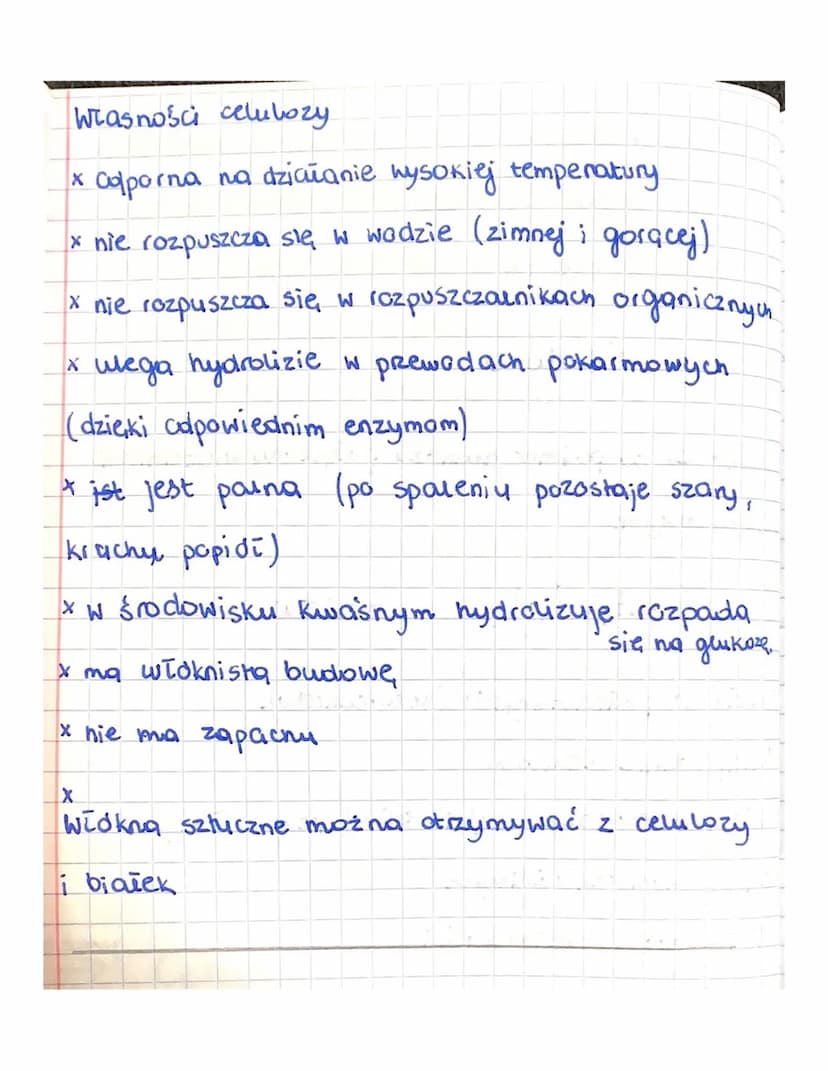 Własności celulozy
x odporna na działanie wysokiej temperatury
x nie rozpuszcza się w wodzie (zimnej i gorącej)
x nie rozpuszcza się w rozpuszczalnikach organicznych
x ulega hydrolizie w przewodach pokarmowych
(dzięki odpowiednim enzymom)
x jst jest palna (po spaleniu pozostaje szary,
kruchy popiół)
x w środowisku kwaśnym hydrolizuje rozpada
się na glukozę.
x ma włóknistą budowę
x nie ma zapachu
x
Włókna sztuczne można otrzymywać z celulozy
i białek